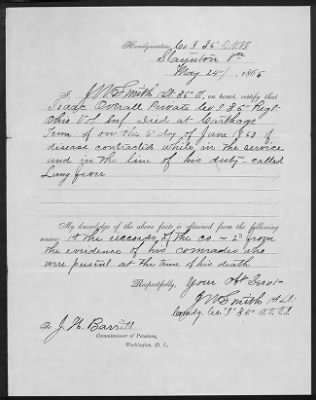 Headquarters, Co I 36" O.V.V.I
Staunton Va
May 24th, 1865
I, J W Smith 1st Lt 36" O, on honor, certify that
Isaac Overall Private Co I 36" Regt
Ohio Vol Inf. Died at Carthage
Tenn of on the 6" day of June 1863 of
disease contracted while in the service
and in the line of his duty – called
Lung fever
My knowledge of the above facts is obtained from the following
sources: 1st the records of the co – 2d from
the evidence of his comrades who
were present at the time of his death
Respectfully, Your Obt Servt
J W Smith 1st Lt.
Comdg. Co. "I" 36"
To J. H. Barrett
Commissioner of Pensions,
Washington, D. C.